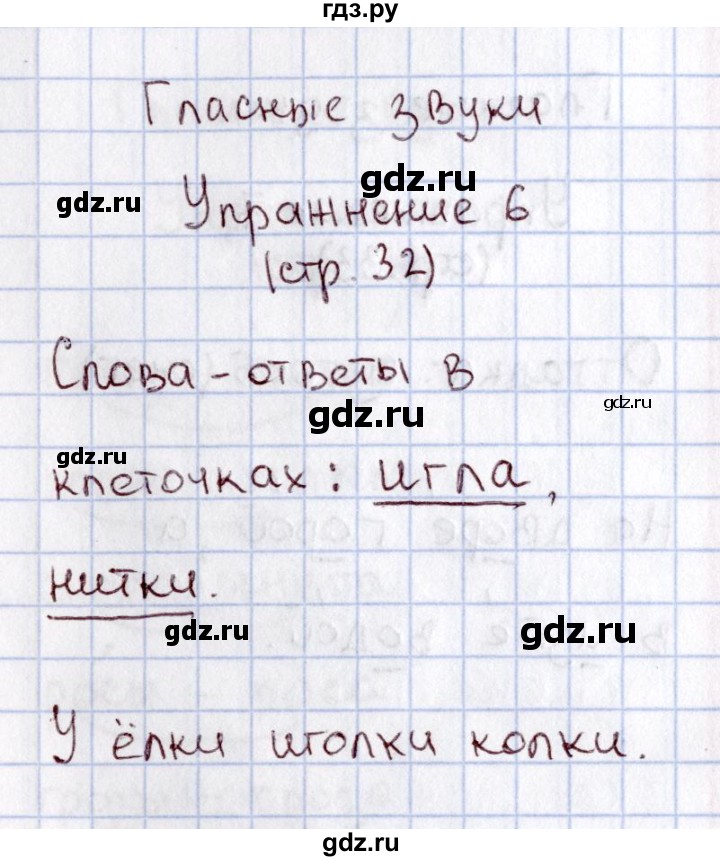 гдз.ру
Гласные звуки
gdz.ru
gdz.ru
Упражнение 6
(стр. 32)
Слова-ответы в
gdz.ru
gdz.ru
gdz.ru
клеточках: игла,
нитки.
gdz.ru
gdz.ru
У ёлки иголки колки.
gdz.ru